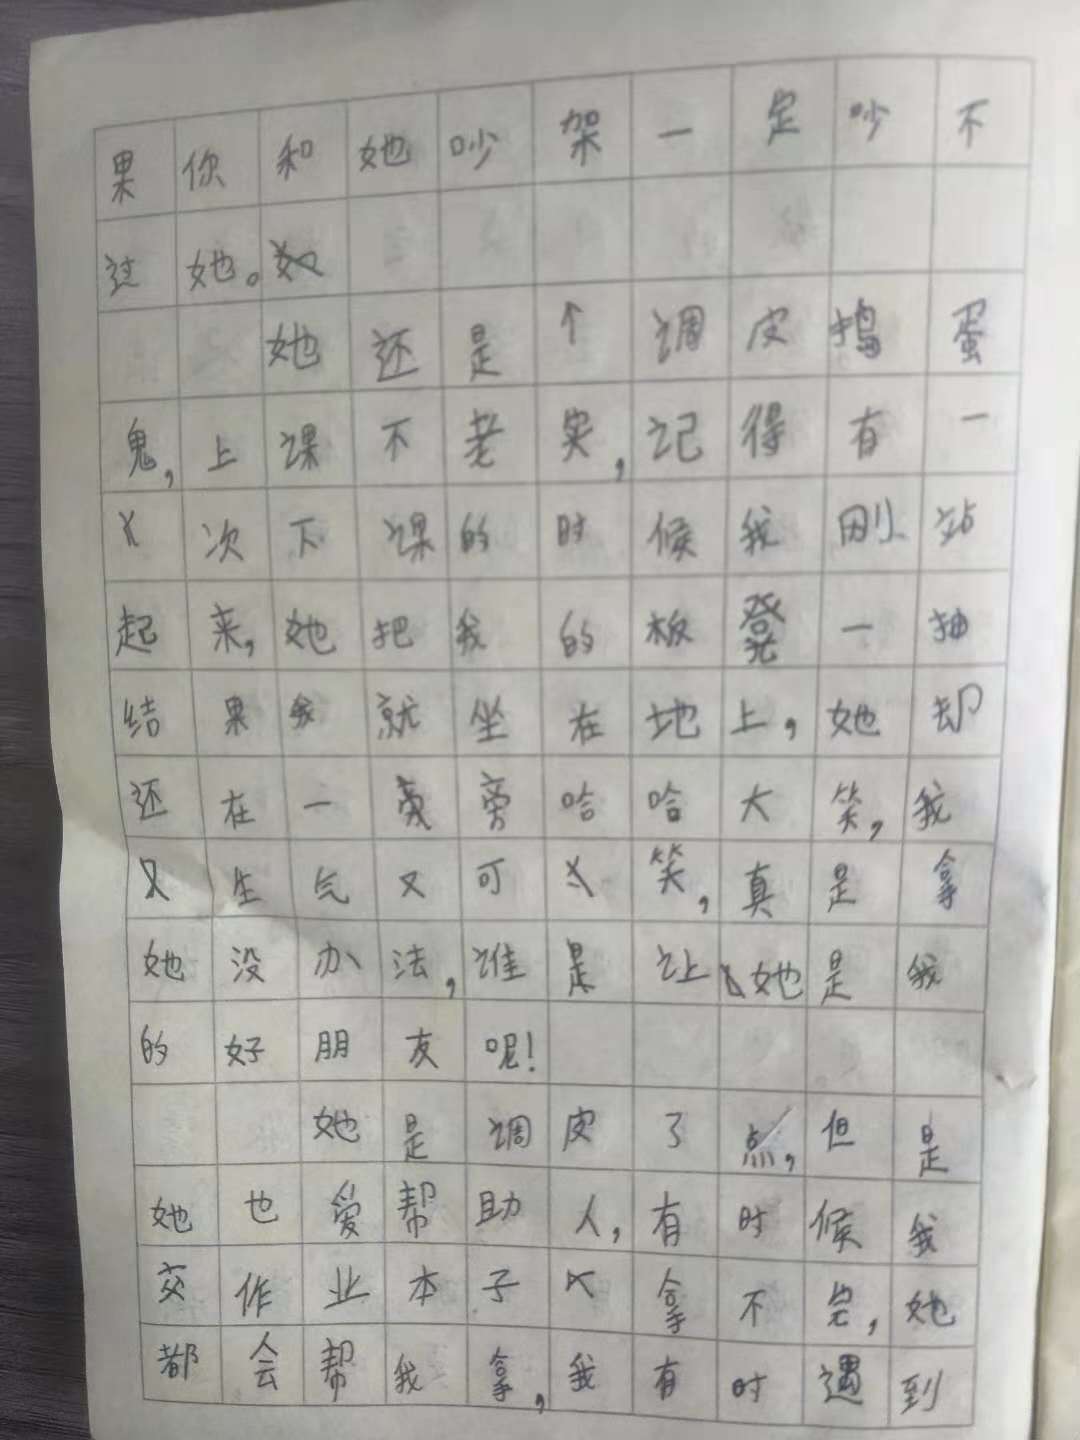 果你和她吵架一定吵不
过她。
她还是个调皮捣蛋
鬼,上课不老实,记得有一
次下课的时候我刚站
起来,她把我的板凳一抽
结果我就坐在地上,她却
还在一旁哈哈大笑,我
又生气又可笑,真是拿
她没办法,谁是让她是我
的好朋友呢!
她是调皮了点,但是
她也爱帮助人,有时候我
交作业本子拿不完,她
都会帮我拿,我有时遇到